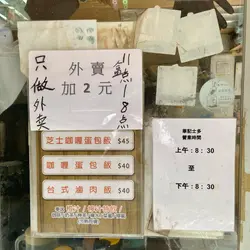 只做外卖
外賣
加2元
11點-8点
芝士咖喱蛋包飯 $45
咖喱蛋包飯 $40
台式滷肉飯 $40
筆記士多
營業時間
上午:8:30
至
下午:8:30